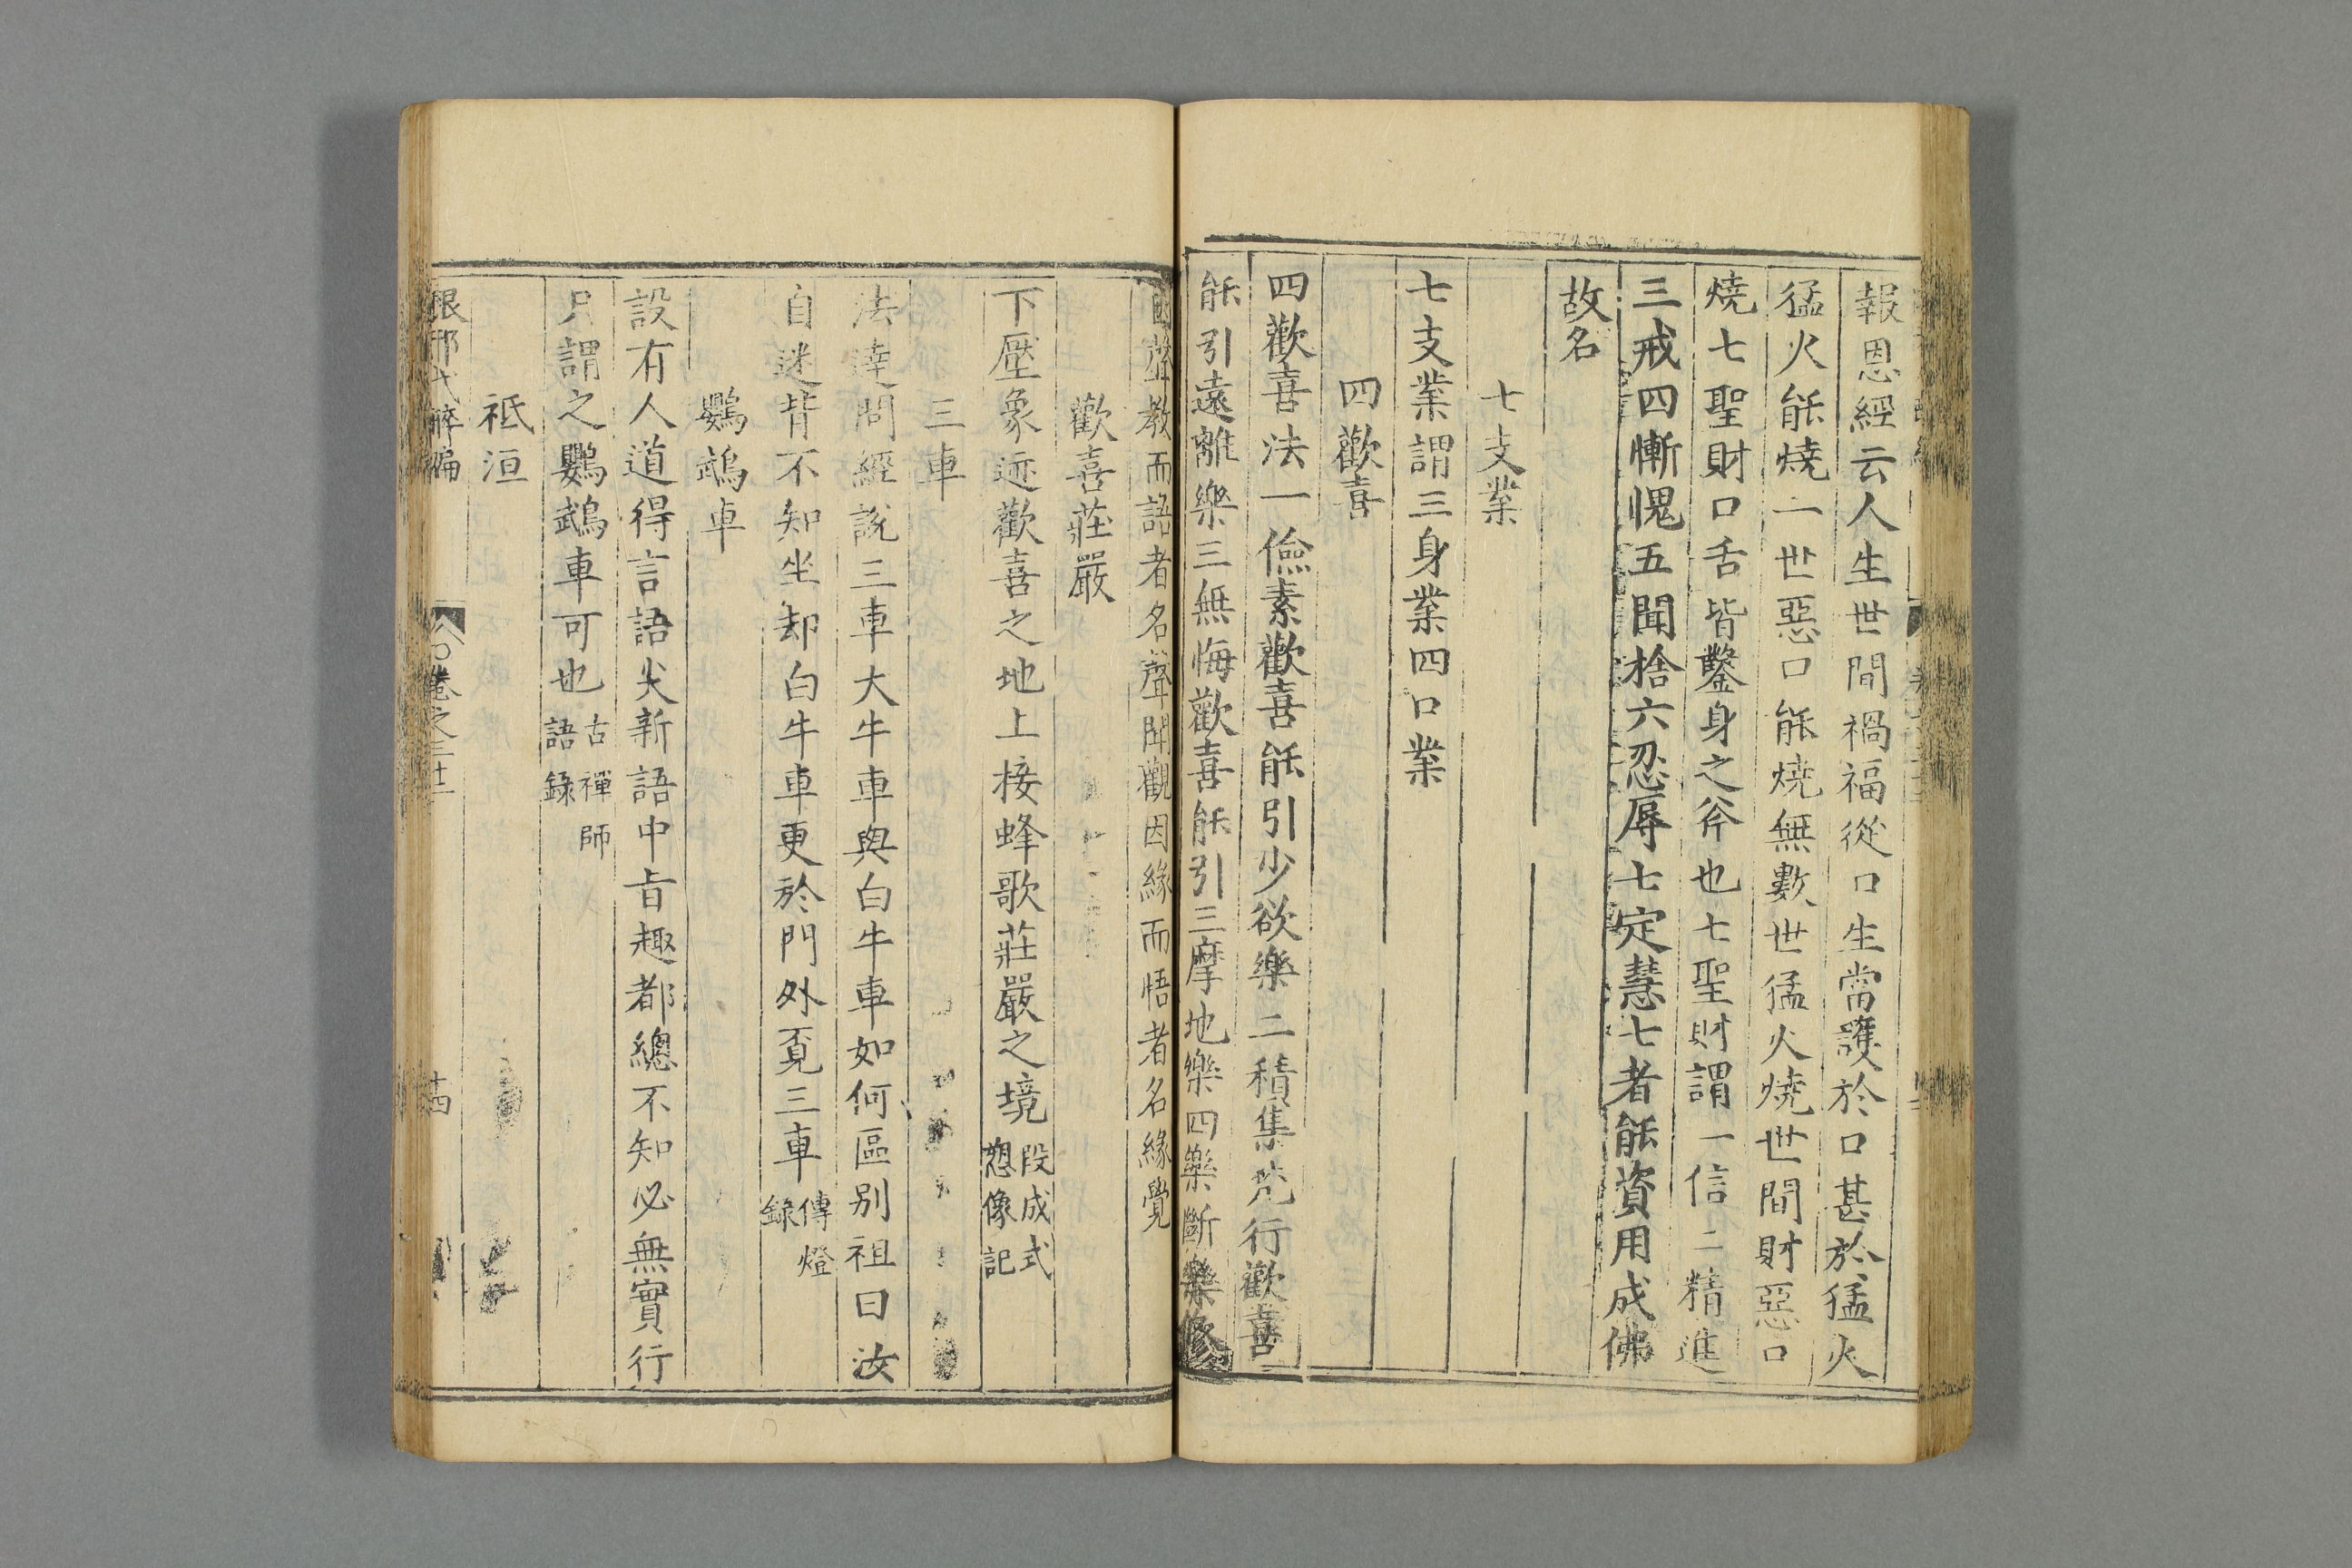 報恩經云人生世間禍福從口生當護於口甚於猛火
猛火能燒一世惡口能燒無數世猛火燒世間財惡口
燒七聖財口舌皆鑿身之斧也七聖財謂一信二精進
三戒四慚愧五聞捨六忍辱七定慧七者能資用成佛
故名
七支業
七支業謂三身業四口業
四歡喜
四歡喜法一儉素歡喜能引少欲樂二積集梵行歡喜
能引遠離樂三無悔歡喜能引三摩地樂四樂斷樂修
因聲教而語者名聲聞觀因緣而悟者名緣覺
歡喜莊嚴
下壓象迹歡喜之地上接蜂歌莊嚴之境段成式
想像記
三車
法達問經說三車大牛車與白牛車如何區別祖曰汝
自迷背不知坐却白牛車更於門外覔三車傳燈
錄
鸚鵡車
設有人道得言語尖新語中旨趣都總不知必無實行
只謂之鸚鵡車可也古禪師
語錄
祇洹
琅邪代醉編 卷之三十二 十四